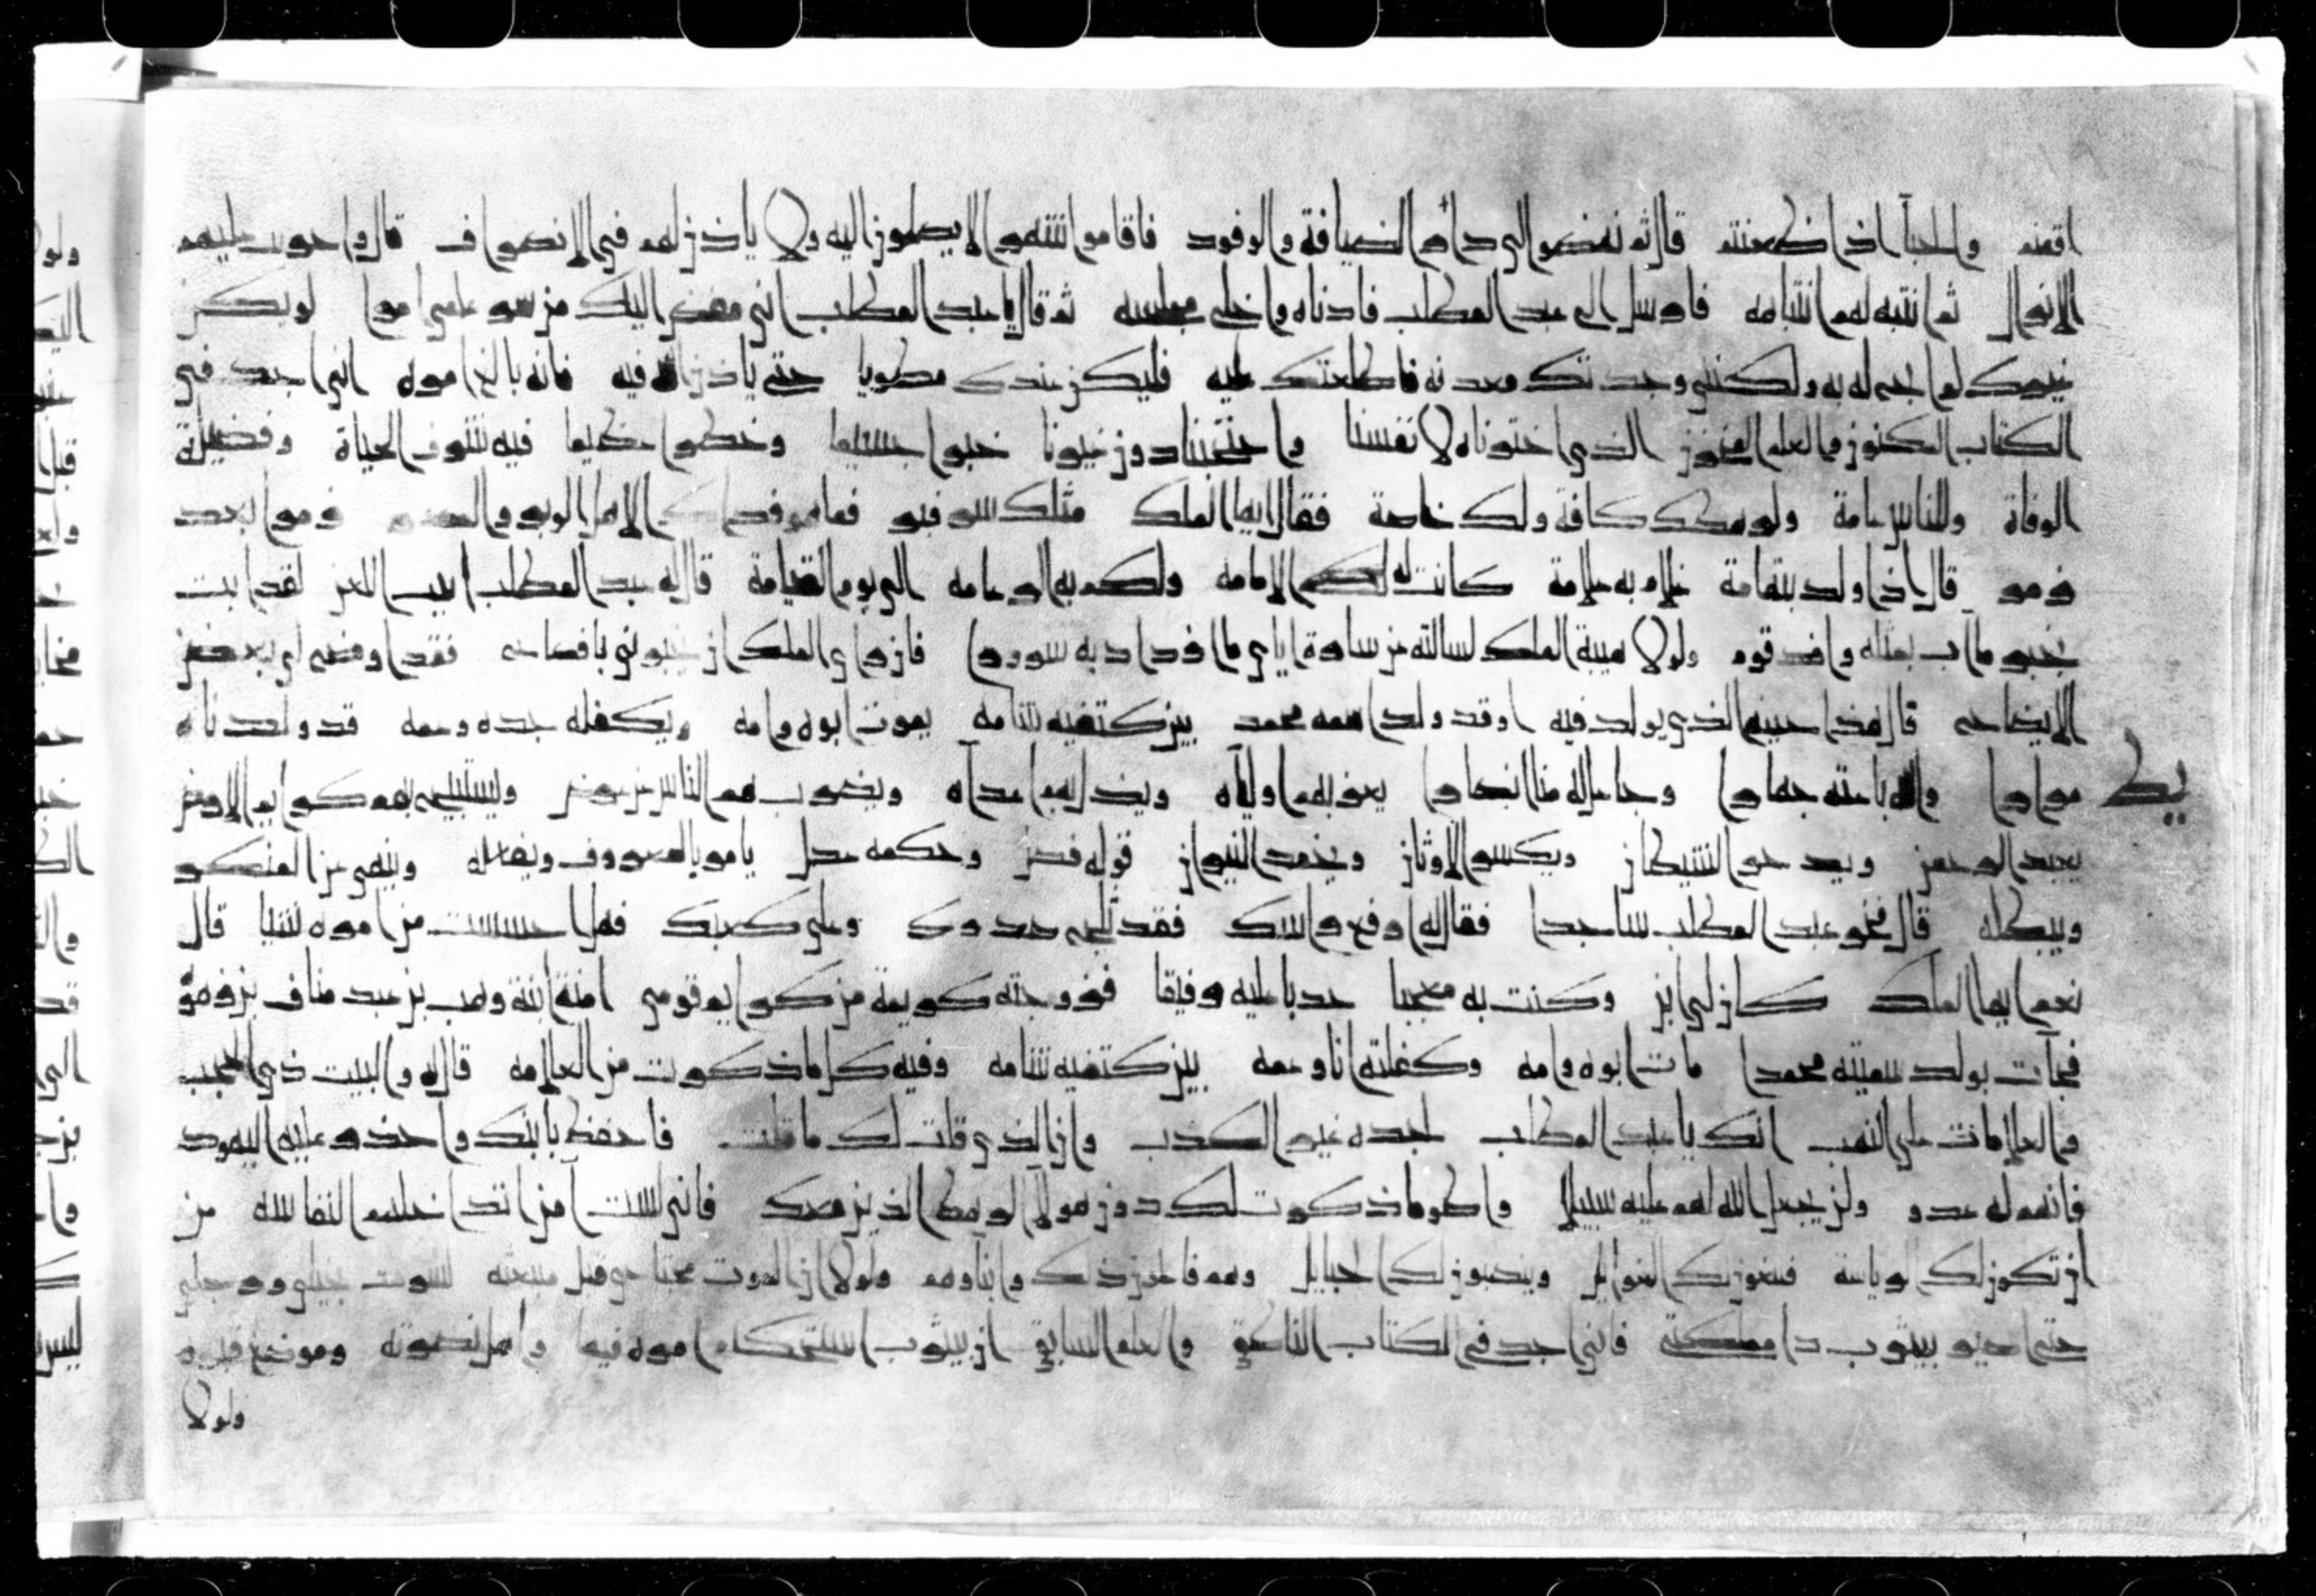 اقمتم والحبآ اذا ظعنتم قال ثم نهضوا الى دار الضيافة والوفود فاقاموا شهرا لا يصلون اليه ولا ياذن لهم في الانصراف قال واجريت عليهم
الانزال ثم انتبه لهم انتباهه فارسل الى عبد المطلب فادناه واخلى مجلسه ثم قال يا عبد المطلب اني مفض اليك من سر علمي امرا لو يكن
غيرك لم ابح له به ولكني وجدتك معدنه فاطلعتك عليه فليكن عندك مطويا حتى ياذن الله فيه فانه بالغ امره اني اجد في
الكتاب المكنون والعلم المخزون الذي اخترناه لانفسنا واحتجبناه دون غيرنا خبرا جسيما وخطرا عظيما فيه شرف الحياة وفضيلة
الوفاة وللناس عامة ولرهطك كافة ولك خاصة فقال ايها الملك مثلك سر وبر فما هو فداك اهل الوبر والمدر زمرا بعد
زمر قال اذا ولد بتهامة غلام به علامة كانت له لكم الامامة ولكم به الزعامه الى يوم القيامة قال له عبد المطلب ابيت اللعن لقد ابت
بخبر ما آب بمثله وافد قوم ولولا هيبة الملك لسالته من ساره اياي ما ازداد به سرورا فان راى الملك ان يخبرني بافصاح فقد اوضح لي بعض
الايضاح قال هذا حينه الذي يولد فيه او قد ولد اسمه محمد بين كتفيه شامه يموت ابوه وامه ويكفله جده وعمه قد ولدناه
مرارا والله باعثه جهارا وجاعل له منا انصارا يعز بهم اولياه ويذل بهم اعداه ويضرب بهم الناس عن عرض ويستبيح بهم كرايم الارض
يط
يعبد الرحمن ويدحر الشيطان ويكسر الاوثان ويخمد النيران قوله فصل وحكمه عدل يامر بالمعروف ويفعله وينهى عن المنكر
ويبطله قال فخر عبد المطلب ساجدا فقال له ارفع راسك فقد ثلج صدرك وعلى كعبك فهل احسست من امره شيا قال
نعم ايها الملك كان لي ابن وكنت به معجبا حدبا عليه رفيقا فزوجته كريمة من كرايم قومي امنة ابنة وهب بن عبد مناف بن زهرة
فجآت بولد سميته محمدا مات ابوه وامه وكفلته انا وعمه بين كتفيه شامه وفيه كل ما ذكرت من العلامه قال له والبيت ذي الحجب
والعلامات على النصب انك يا عبد المطلب لجده غير الكذب وان الذي قلت لك ما قلت فاحفظ بابنك واحذر عليه اليهود
فانهم له عدو ولن يجعل الله لهم عليه سبيلا واطو ما ذكرت لك دون هولآ الرهط الذين معك فاني لست آمن ان تداخلهم النفاسه من
ان تكون لك الرياسة فيبغون لك الغوايل وينصبون لك الحبايل وهم فاعلون ذلك وابناوهم ولولا ان الموت مجتاحي قبل مبعثه لسرت بخيلي ورجلي
حتى اصير بيثرب دار مملكته فاني اجد في الكتاب الناطق والعلم السابق ان بيثرب استحكام امره فيها واهل نصرته وموضع قبره
ولولا